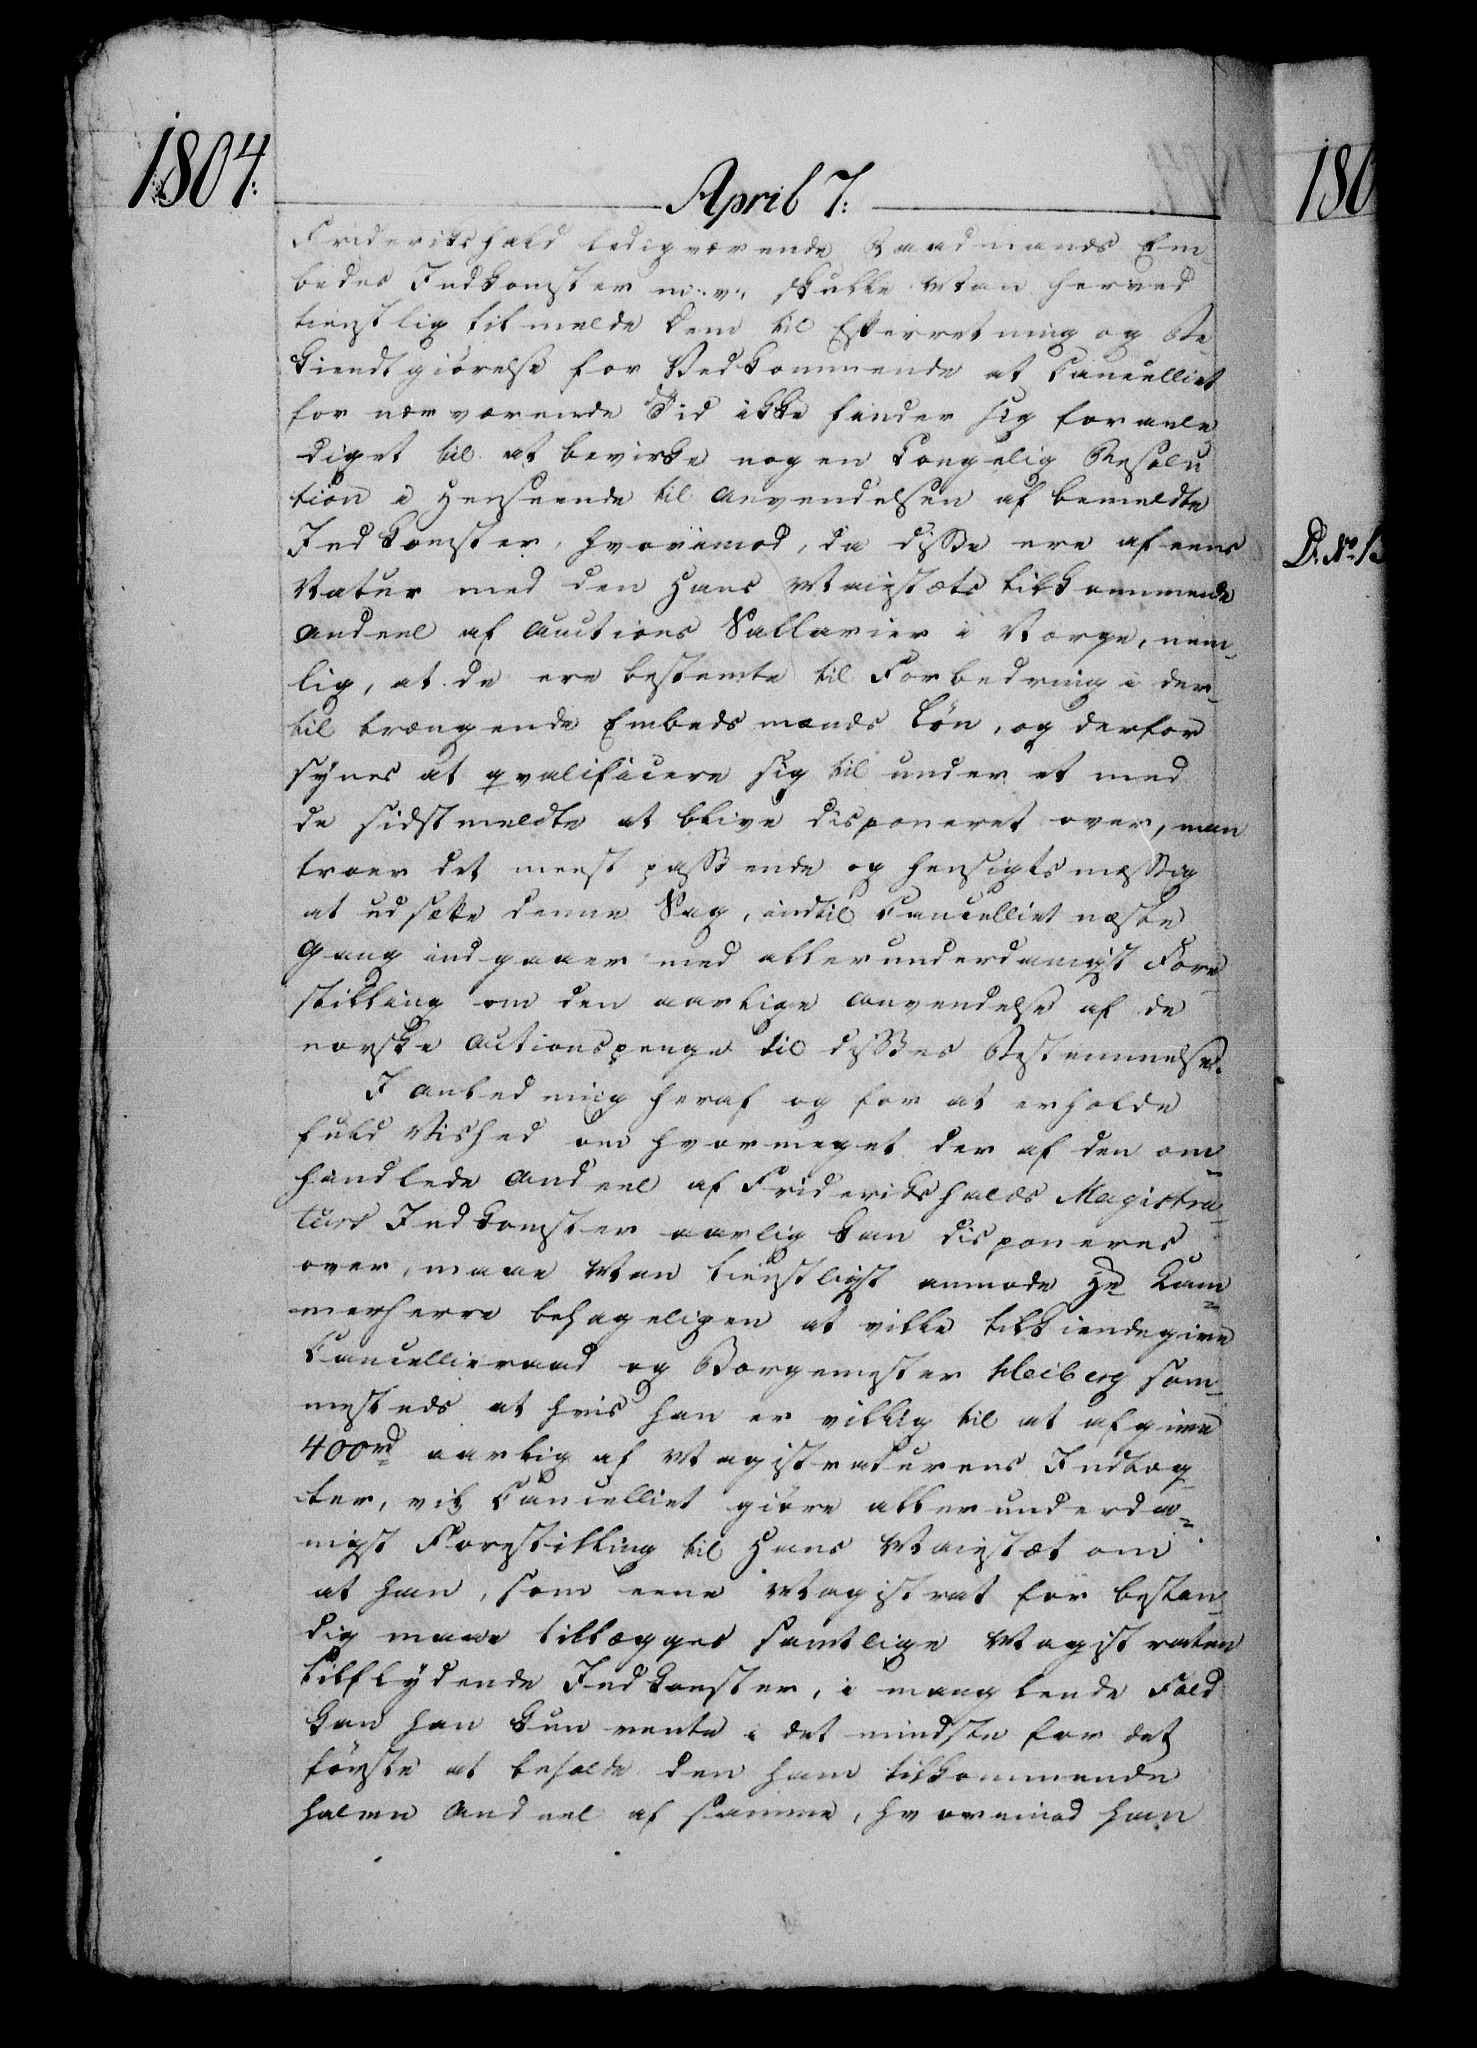 1804.
April 7:
180
Friderikshald ledigværende Raadmands Em-
bedes Indkomster m: v:, skulle Man herved
tienstlig tilmelde Dem til Efterretning og Be-
kiendtgiörelse for Vedkommende at Cancelliet
for nærværende Tid ikke finder sig foranle
diget til at bevirke nogen Kongelig Resolu
tion i Henseende til Anvendelsen af bemeldte
Indkomster, hvorimod, da disse ere af eens
Natur med den Hans Majestæts tilkommende
Andeel af Auctions Sallarier i Norge, nem-
lig, at de ere bestemte til Forbedring i der-
til trængende Embedsmænds Lön, og derfor
synes at qvalificere sig til under et med
de sidstmeldte at blive disponeret over, man
troer det meest passende og hensigtsmæssig
at udsætte denne Sag, indtil Cancelliet næste
Gang indgaaer med allerunderdanigst Fore-
stilling om den aarlige Anvendelse af de
norske Auctionspenge til disses Bestemmelse.
I Anledning heraf og for at erholde
fuld Vished om hvormeget der af den om-
handlede Andeel af Friderikshalds Magistra-
turs Indkomster aarlig kan disponeres
over, maae Man tienstligst anmode Hr Kam-
merherre behageligen at ville tilkiendegive
Cancellieraad og Borgemester Heiberg sam-
mesteds at hvis han er villig til at afgive
400rd aarlig af Magistraturens Indtæg-
ter, vil Cancelliet giöre allerunderda-
nigst Forestilling til Hans Majestæt om
at han, som eene Magistrat for bestan-
dig maae tillægges samtlige Magistraten
tilflydende Indkomster, i manglende Fald
kan han kun vente i det mindste for det
förste at beholde den ham tilkommende
halve Andeel af samme, hvorimod han
D. No. 1